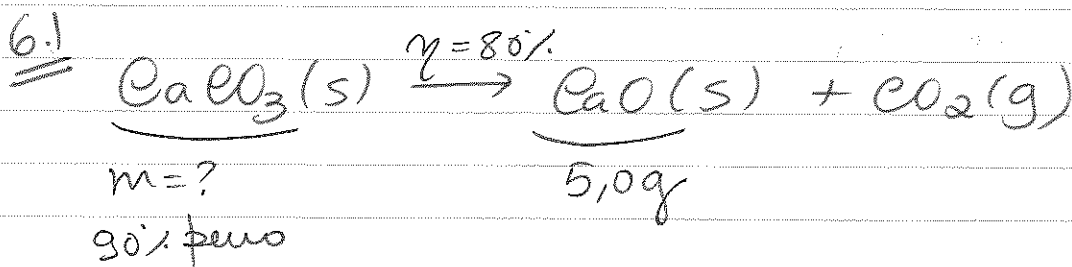 6.1
η = 80%
CaCO₃(s) → CaO(s) + CO₂(g)
m = ? 5,0g
90% puro